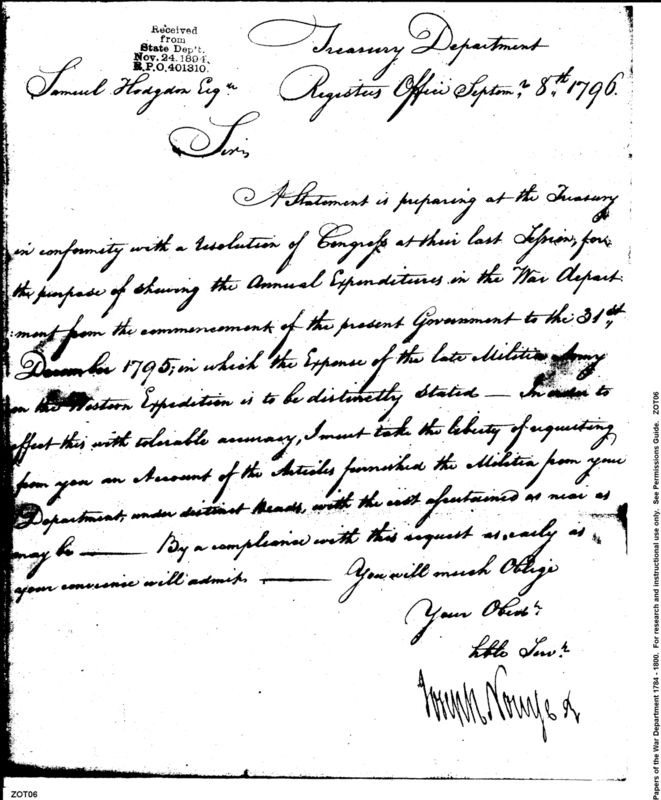 Received
from
State Dep't.
Nov. 24. 1894.
R.P.O. 401310.
Treasury Department
Samuel Hodgdon Esqr
Registers Office Septemr 8th 1796.
Sir,
A Statement is preparing at the Treasury
in conformity with a resolution of Congress at their last Session, for
the purpose of shewing the Annual Expenditures in the War depart:
:ment from the commencement of the present Government to the 31st
December 1795; in which the Expense of the late Militia Army
on the Western Expedition is to be distinctly Stated — In order to
effect this with tolerable accuracy, I must take the liberty of requesting
from you an Account of the Articles furnished the Militia from your
Department, under distinct Heads, with the cost ascertained as near as
may be — By a compliance with this request as early as
your convenience will admit, — You will much Oblige
Your Obedt
hble Servt
Joseph Nourse R
Papers of the War Department 1784 - 1800. For research and instructional use only. See Permissions Guide. ZOT06
ZOT06